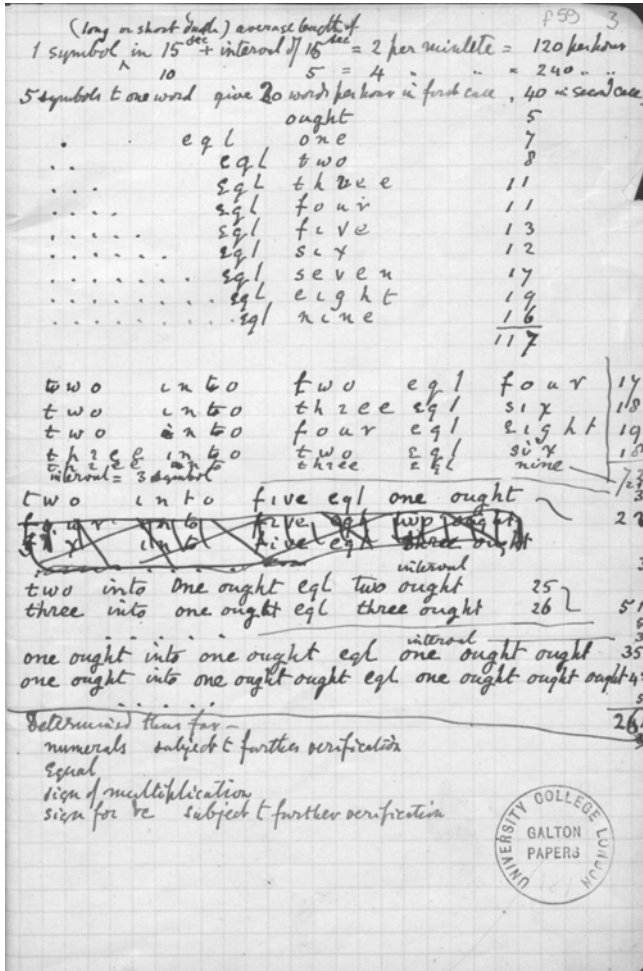 f 59 3
(long or short dash) average length of
1 symbol ^ in 15 sec + interval of 15 sec = 2 per minute = 120 per hour
10 5 = 4 " " " 240 " "
5 symbols to one word give 20 words per hour in first case, 40 in second case
ought 5
. eql one 7
. . eql two 8
. . . eql three 11
. . . . eql four 11
. . . . . eql five 13
. . . . . . eql six 12
. . . . . . . eql seven 17
. . . . . . . . eql eight 19
. . . . . . . . . eql nine 16
117
two into two eql four 17
two into three eql six 18
two into four eql eight 19
three into two eql six 18
three into three eql nine
interval = 3 symbol
two into five eql one ought 22
four into five eql two ought
six into five eql three ought
interval
two into one ought eql two ought 25
three into one ought eql three ought 26 51
interval
one ought into one ought eql one ought ought 35
one ought into one ought ought eql one ought ought ought
Determined thus far –
numerals subject to further verification
Equal
sign of multiplication
sign for subject to further verification
UNIVERSITY COLLEGE LONDON
GALTON
PAPERS